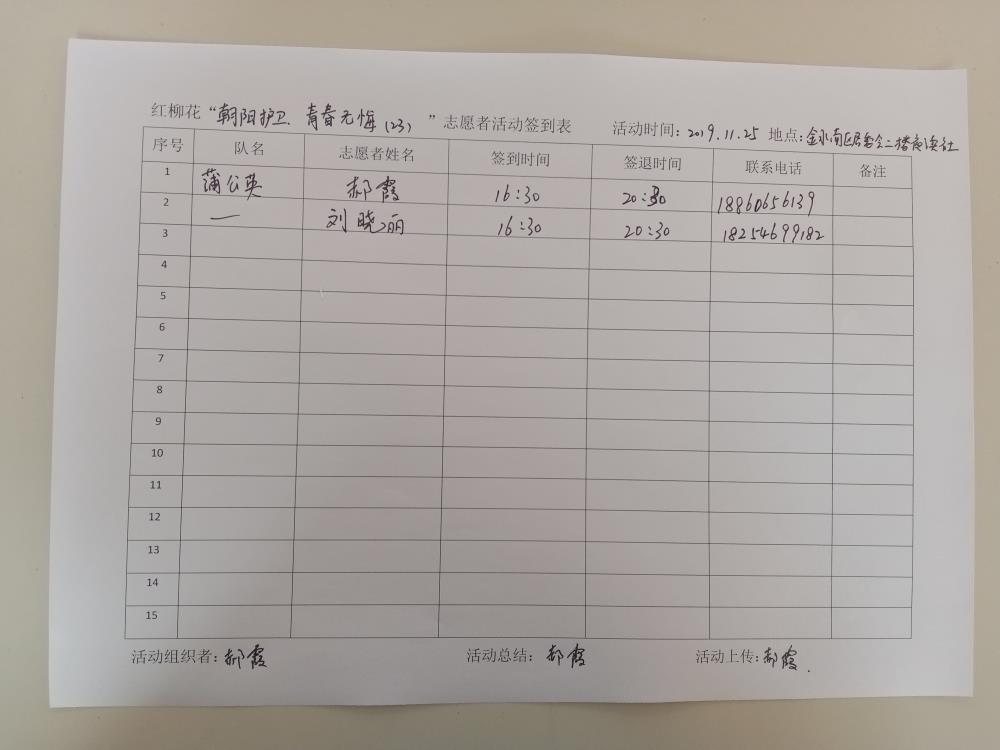 红柳花“朝阳护卫. 青春无悔(23) ”志愿者活动签到表 活动时间:2019.11.25 地点:金水南区居委会二楼夜读社
序号 队名 志愿者姓名 签到时间 签退时间 联系电话 备注
1 蒲公英 郝霞 16:30 20:30 18860656139
2 一 刘晓丽 16:30 20:30 18254699182
3
4
5
6
7
8
9
10
11
12
13
14
15
活动组织者:郝霞 活动总结:郝霞 活动上传:郝霞.